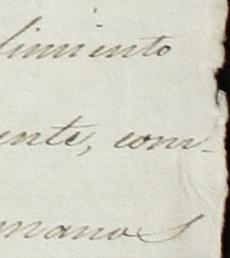 limiento
ente, com-
manos